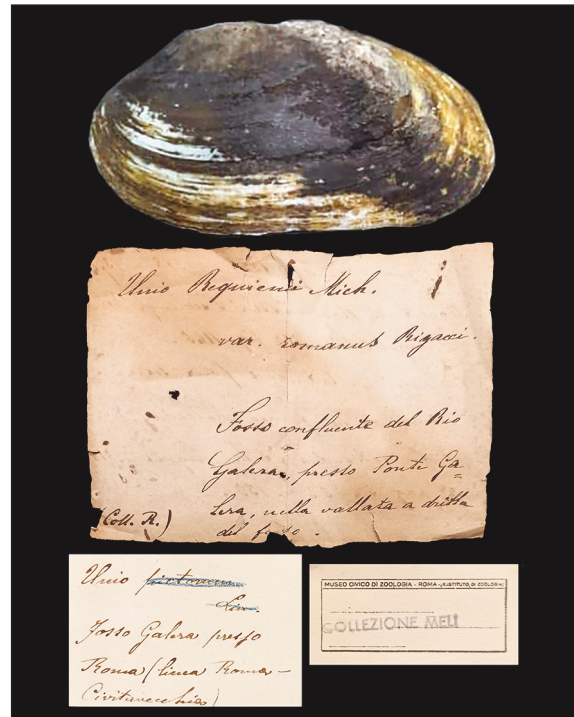 Unio Requienii Mich.
var. romanus Rigacci.
Fosso confluente del Rio
Galera, presso Ponte Ga=
lera, nella vallata a dritta
del fosso.
(Coll. R.)
Unio pictorum
Lin.
Fosso Galera presso
Roma (linea Roma -
Civitavecchia)
MUSEO CIVICO DI ZOOLOGIA - ROMA - (EX ISTITUTO DI ZOOLOGIA)
COLLEZIONE MELI